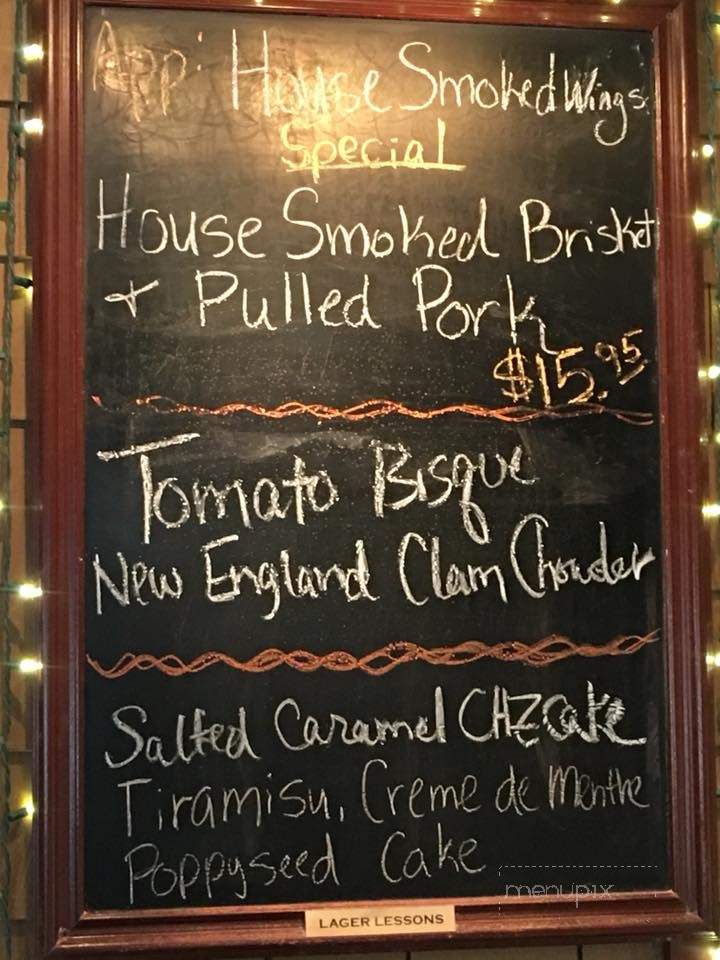 App: House Smoked Wings
Special
House Smoked Brisket
+ Pulled Pork
$15.95
Tomato Bisque
New England Clam Chowder
Salted Caramel CHZCake
Tiramisu, Creme de Menthe
Poppyseed Cake
menupix
LAGER LESSONS